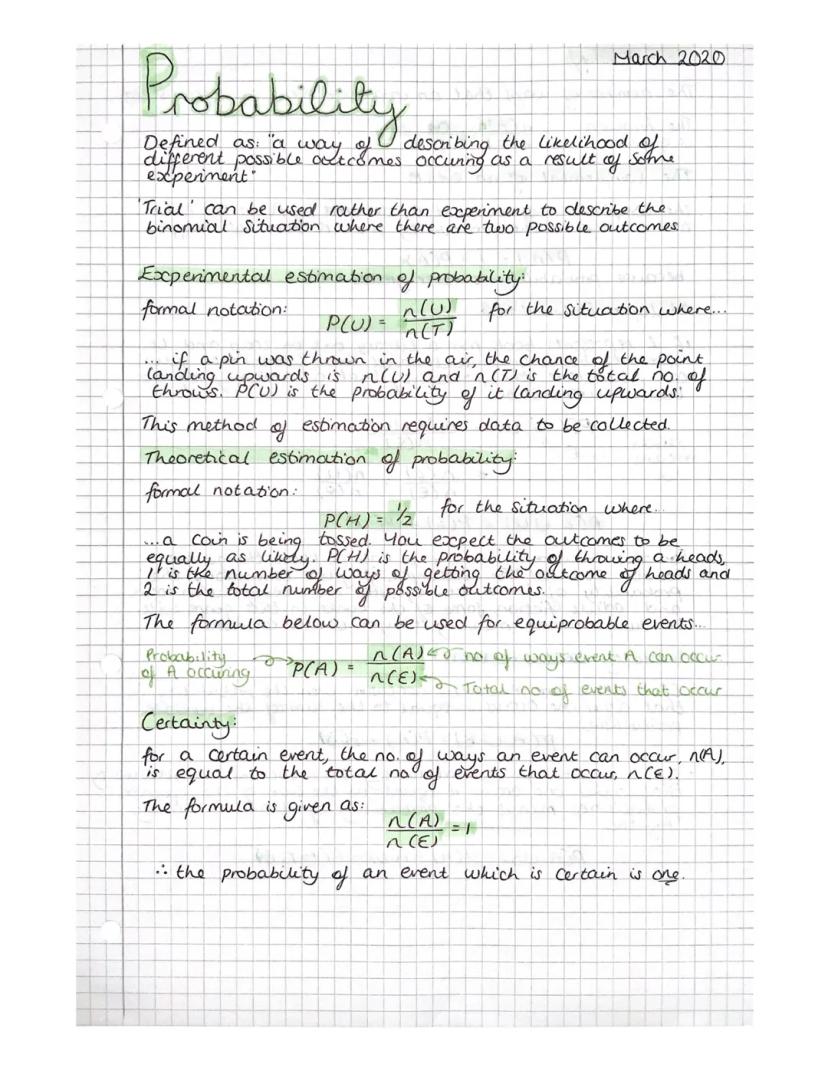 March 2020
Probability
Defined as: "a way of describing the likelihood of
different possible outcomes occuring as a result of some
experiment"
'Trial' can be used rather than experiment to describe the
binomial situation where there are two possible outcomes
Experimental estimation of probability:
formal notation:
P(U) = n(U)/n(T) for the situation where...
... if a pin was thrown in the air, the chance of the point
landing upwards is n(U) and n(T) is the total no. of
throws. P(U) is the probability of it landing upwards.
This method of estimation requires data to be collected.
Theoretical estimation of probability:
formal notation:
P(H) = 1/2 for the situation where...
...a coin is being tossed. You expect the outcomes to be
equally as likely. P(H) is the probability of throwing a heads,
1 is the number of ways of getting the outcome of heads and
2 is the total number of possible outcomes.
The formula below can be used for equiprobable events...
Probability of A occuring → P(A) = n(A)/n(E) ← no of ways event A can occur
← Total no of events that occur
Certainty:
for a certain event, the no. of ways an event can occur, n(A),
is equal to the total no of events that occur, n(E).
The formula is given as:
n(A)/n(E) = 1
∴ the probability of an event which is certain is one.